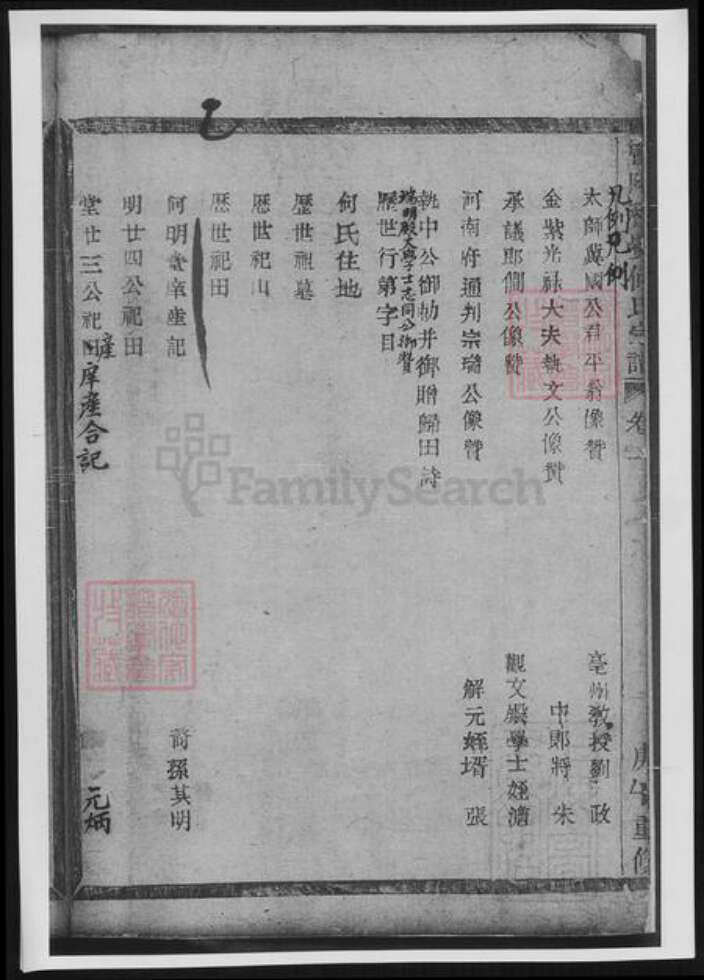 何氏宗譜 卷
庚午重修
凡例凡例
太師冀國公君平翁像贊 亳州教授劉政
金紫光祿大夫執文公像贊 中郎將朱
承議郎僩公像贊 觀文殿學士姪澹
河南府通判宗璹公像贊 解元姪壻張
執中公御勅并御贈歸田詩
端明殿大學士志同公御贊
歷世行第字目
何氏住地
歷世祖墓
歷世祀山
歷世祀田
何明堂庠產記 裔孫其明
明廿四公祀田
堂廿三公祀田產庠產合記 元炳
FamilySearch